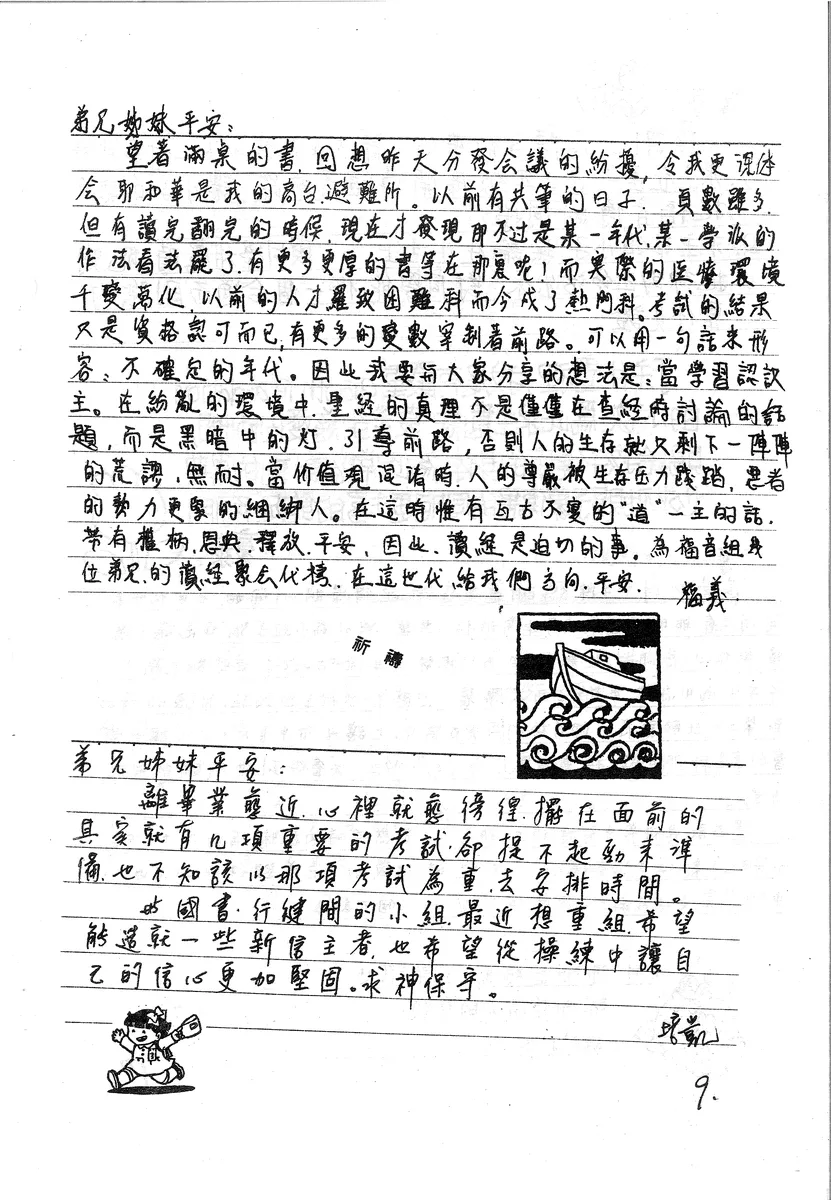 弟兄姊妹平安：
望著滿桌的書，回想昨天分發会議的紛擾，令我更深体
会耶和華是我的高台避難所。以前有共筆的日子，頁數雖多，
但有讀完翻完的時候，現在才發現那不过是某一年代，某一學派的
作法看法罷了，有更多更厚的書等在那裏呢！而實際的医療環境
千變萬化，以前的人才羅致困難科而今成了熱門科。考試的結果
只是資格認可而已，有更多的變數宰制著前路。可以用一句話來形
容：不確定的年代。因此我要和大家分享的想法是：當學習認识
主。在紛亂的環境中，聖経的真理不是僅僅在查経時討論的話
題，而是黑暗中的灯，引導前路，否則人的生存就只剩下一陣陣
的荒謬、無耐。當价值观混淆時，人的尊嚴被生存压力踐踏，惡者
的勢力更緊的綑綁人。在這時惟有亙古不變的"道"－主的話，
带有權柄，恩典，釋放，平安，因此，讀経是迫切的事。為福音組幾
位弟兄的讀経聚会代禱，在這世代給我們方向，平安，
福義.
祈禱
弟兄姊妹平安：
離畢業愈近，心裡就愈徬徨，擺在面前的
其实就有几項重要的考試，卻提不起勁來準
備，也不知該以那項考試為重，去安排時間。
與國書、行健間的小組，最近想重組，希望
能造就一些新信主者，也希望從操練中讓自
己的信心更加堅固。求神保守。
培凱
9.